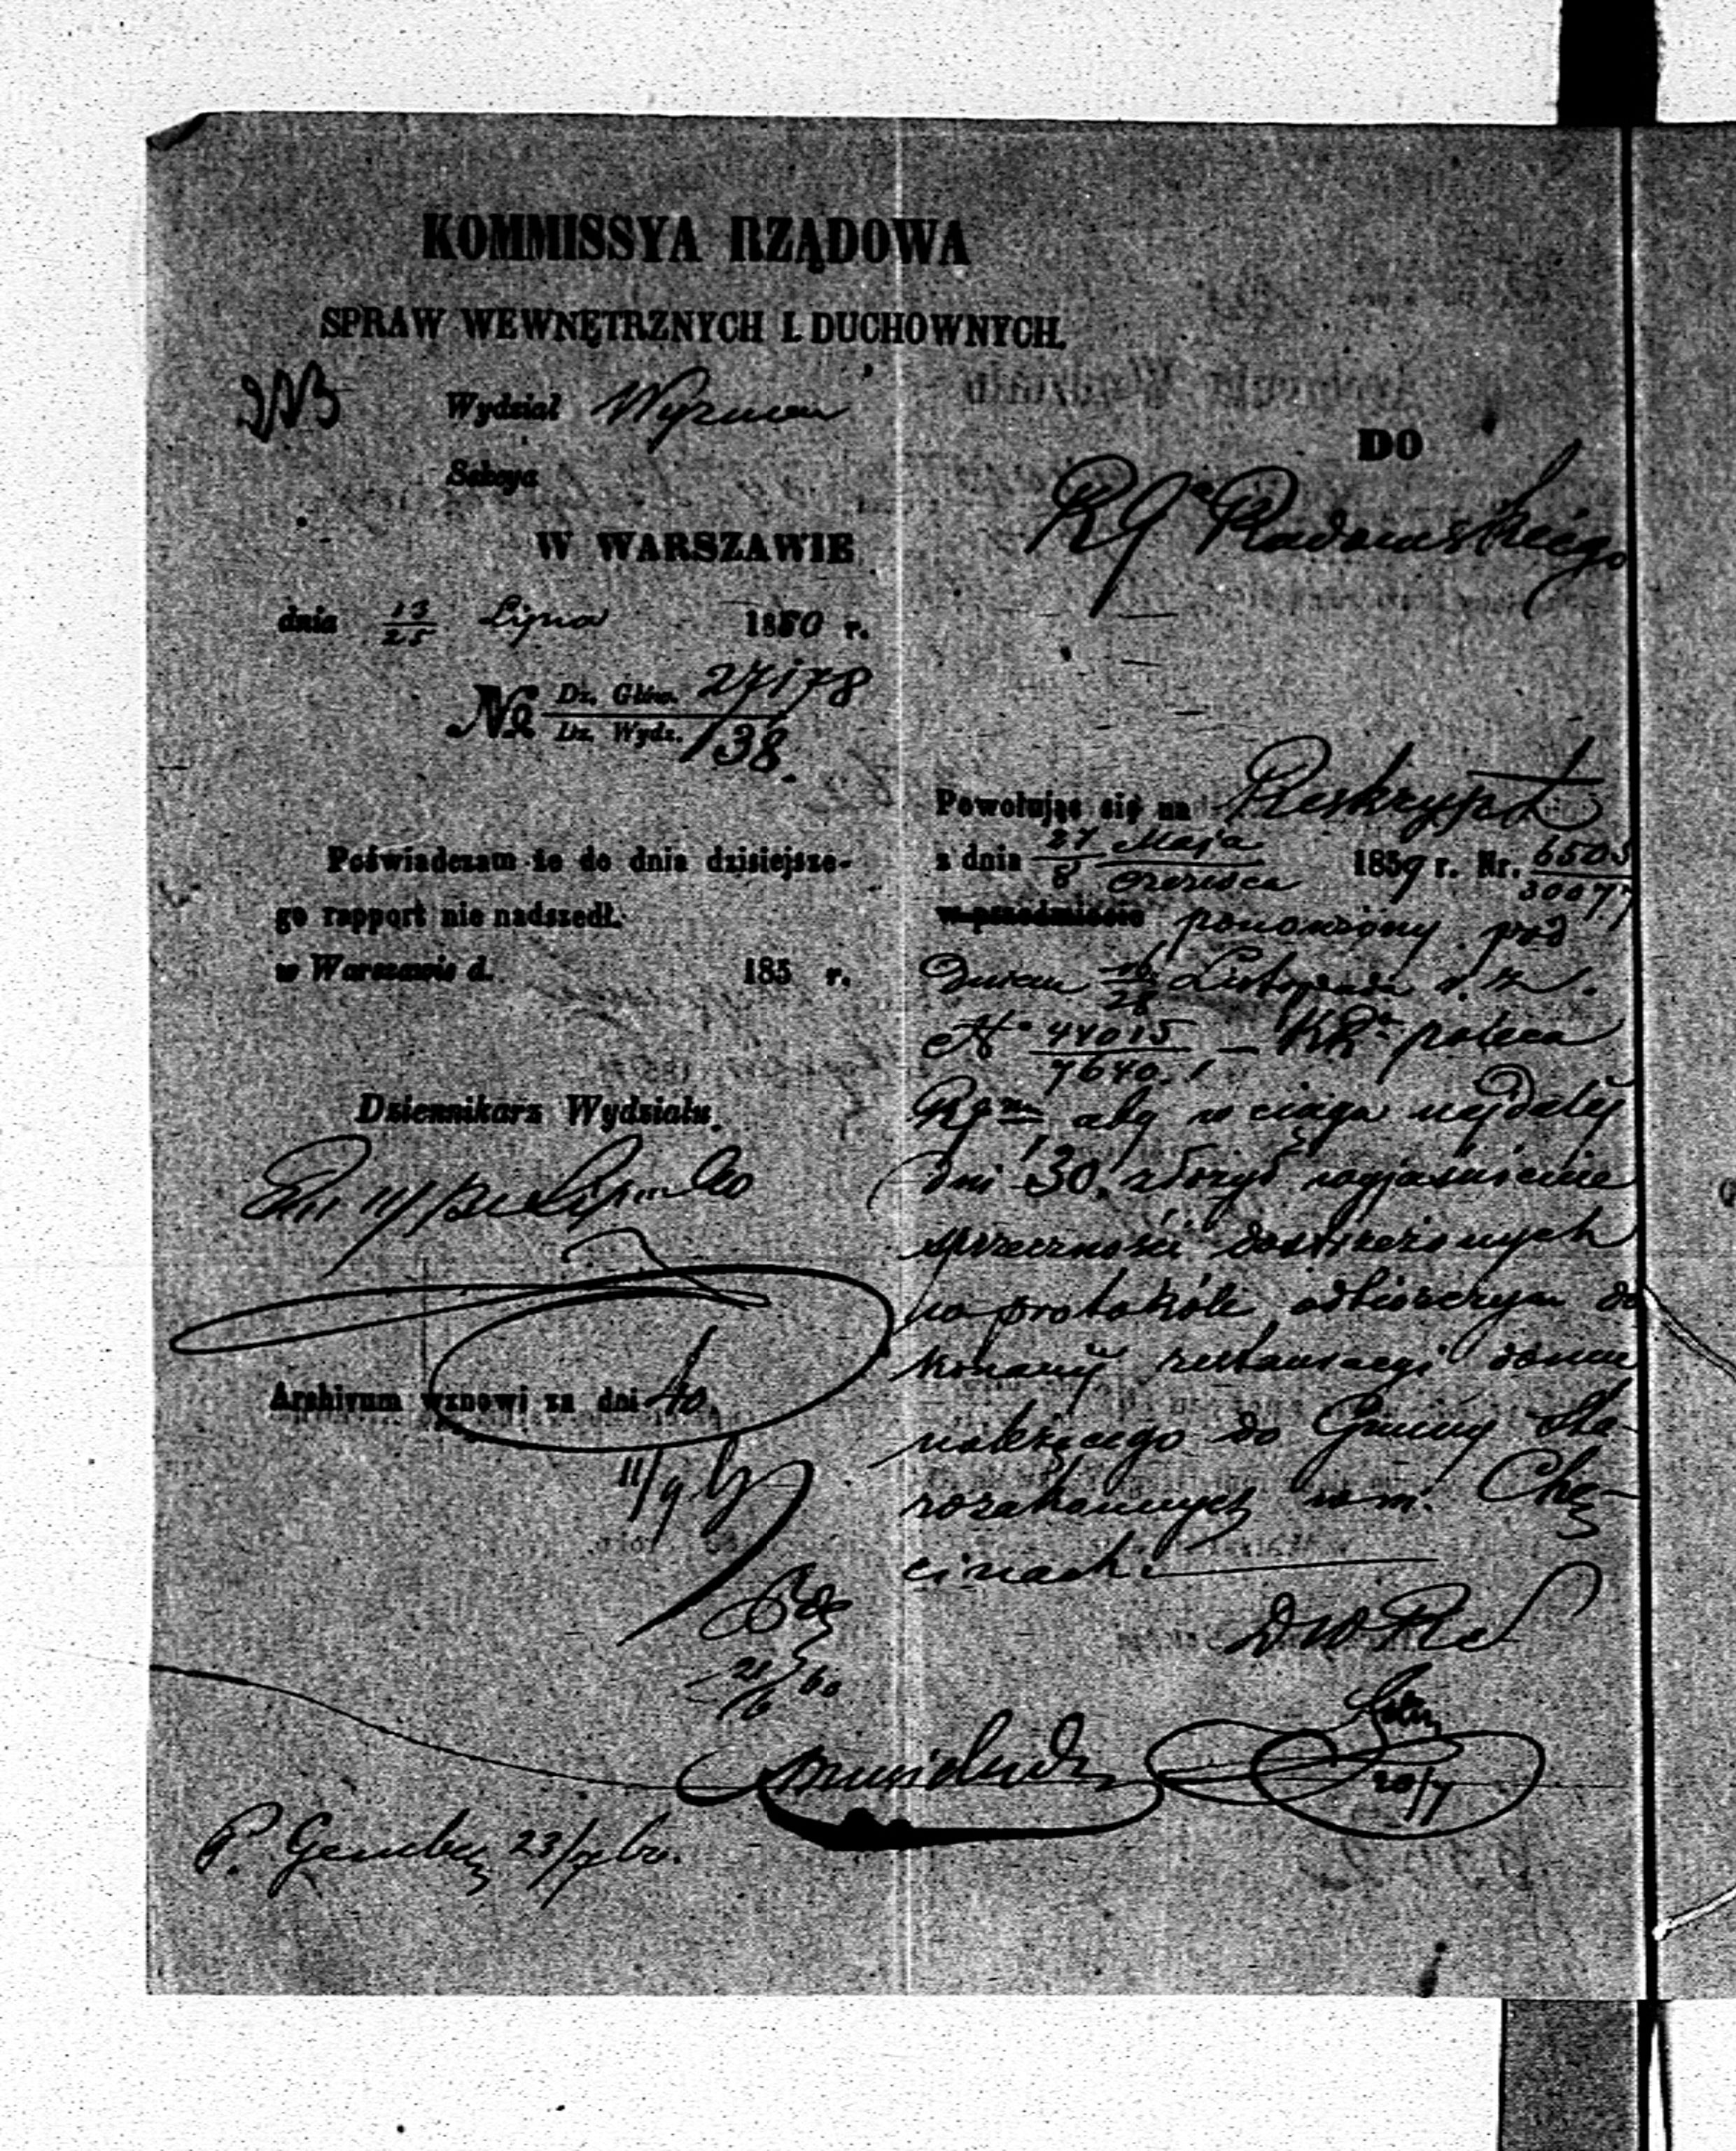 KOMMISSYA RZĄDOWA
SPRAW WEWNĘTRZNYCH I DUCHOWNYCH.
Wydział Wyznań
Sekcya
W WARSZAWIE
dnia 13/25 Lipca 1860 r.
№ Dz. Głów. 27178
Dz. Wydz. 138.
Poświadczam że do dnia dzisiejsze-
go rapport nie nadszedł.
w Warszawie d. 185 r.
Dziennikarz Wydziału
Archivum wznowi za dni 40
11/9
DO
RGo Radomskiego
Powołując się na Reskrypt
z dnia 27 Maja / 8 Czerwca 1859 r. Nr. 6503/30077
w przedmiocie ponowiony pod
dniem 16/28 Listopada r. z.
N° 44015/7640. – KRa poleca
RGmu aby w ciągu najdalej
dni 30, złożył wyjaśnienie
sprzeczności dostrzeżonych
w protokóle odbiorczym do
konanej restauracyi domu
należącego do Gminy Sta-
rozakonnych w m. Chę-
cinach.
DW Re
20/7
P. 23/7br.